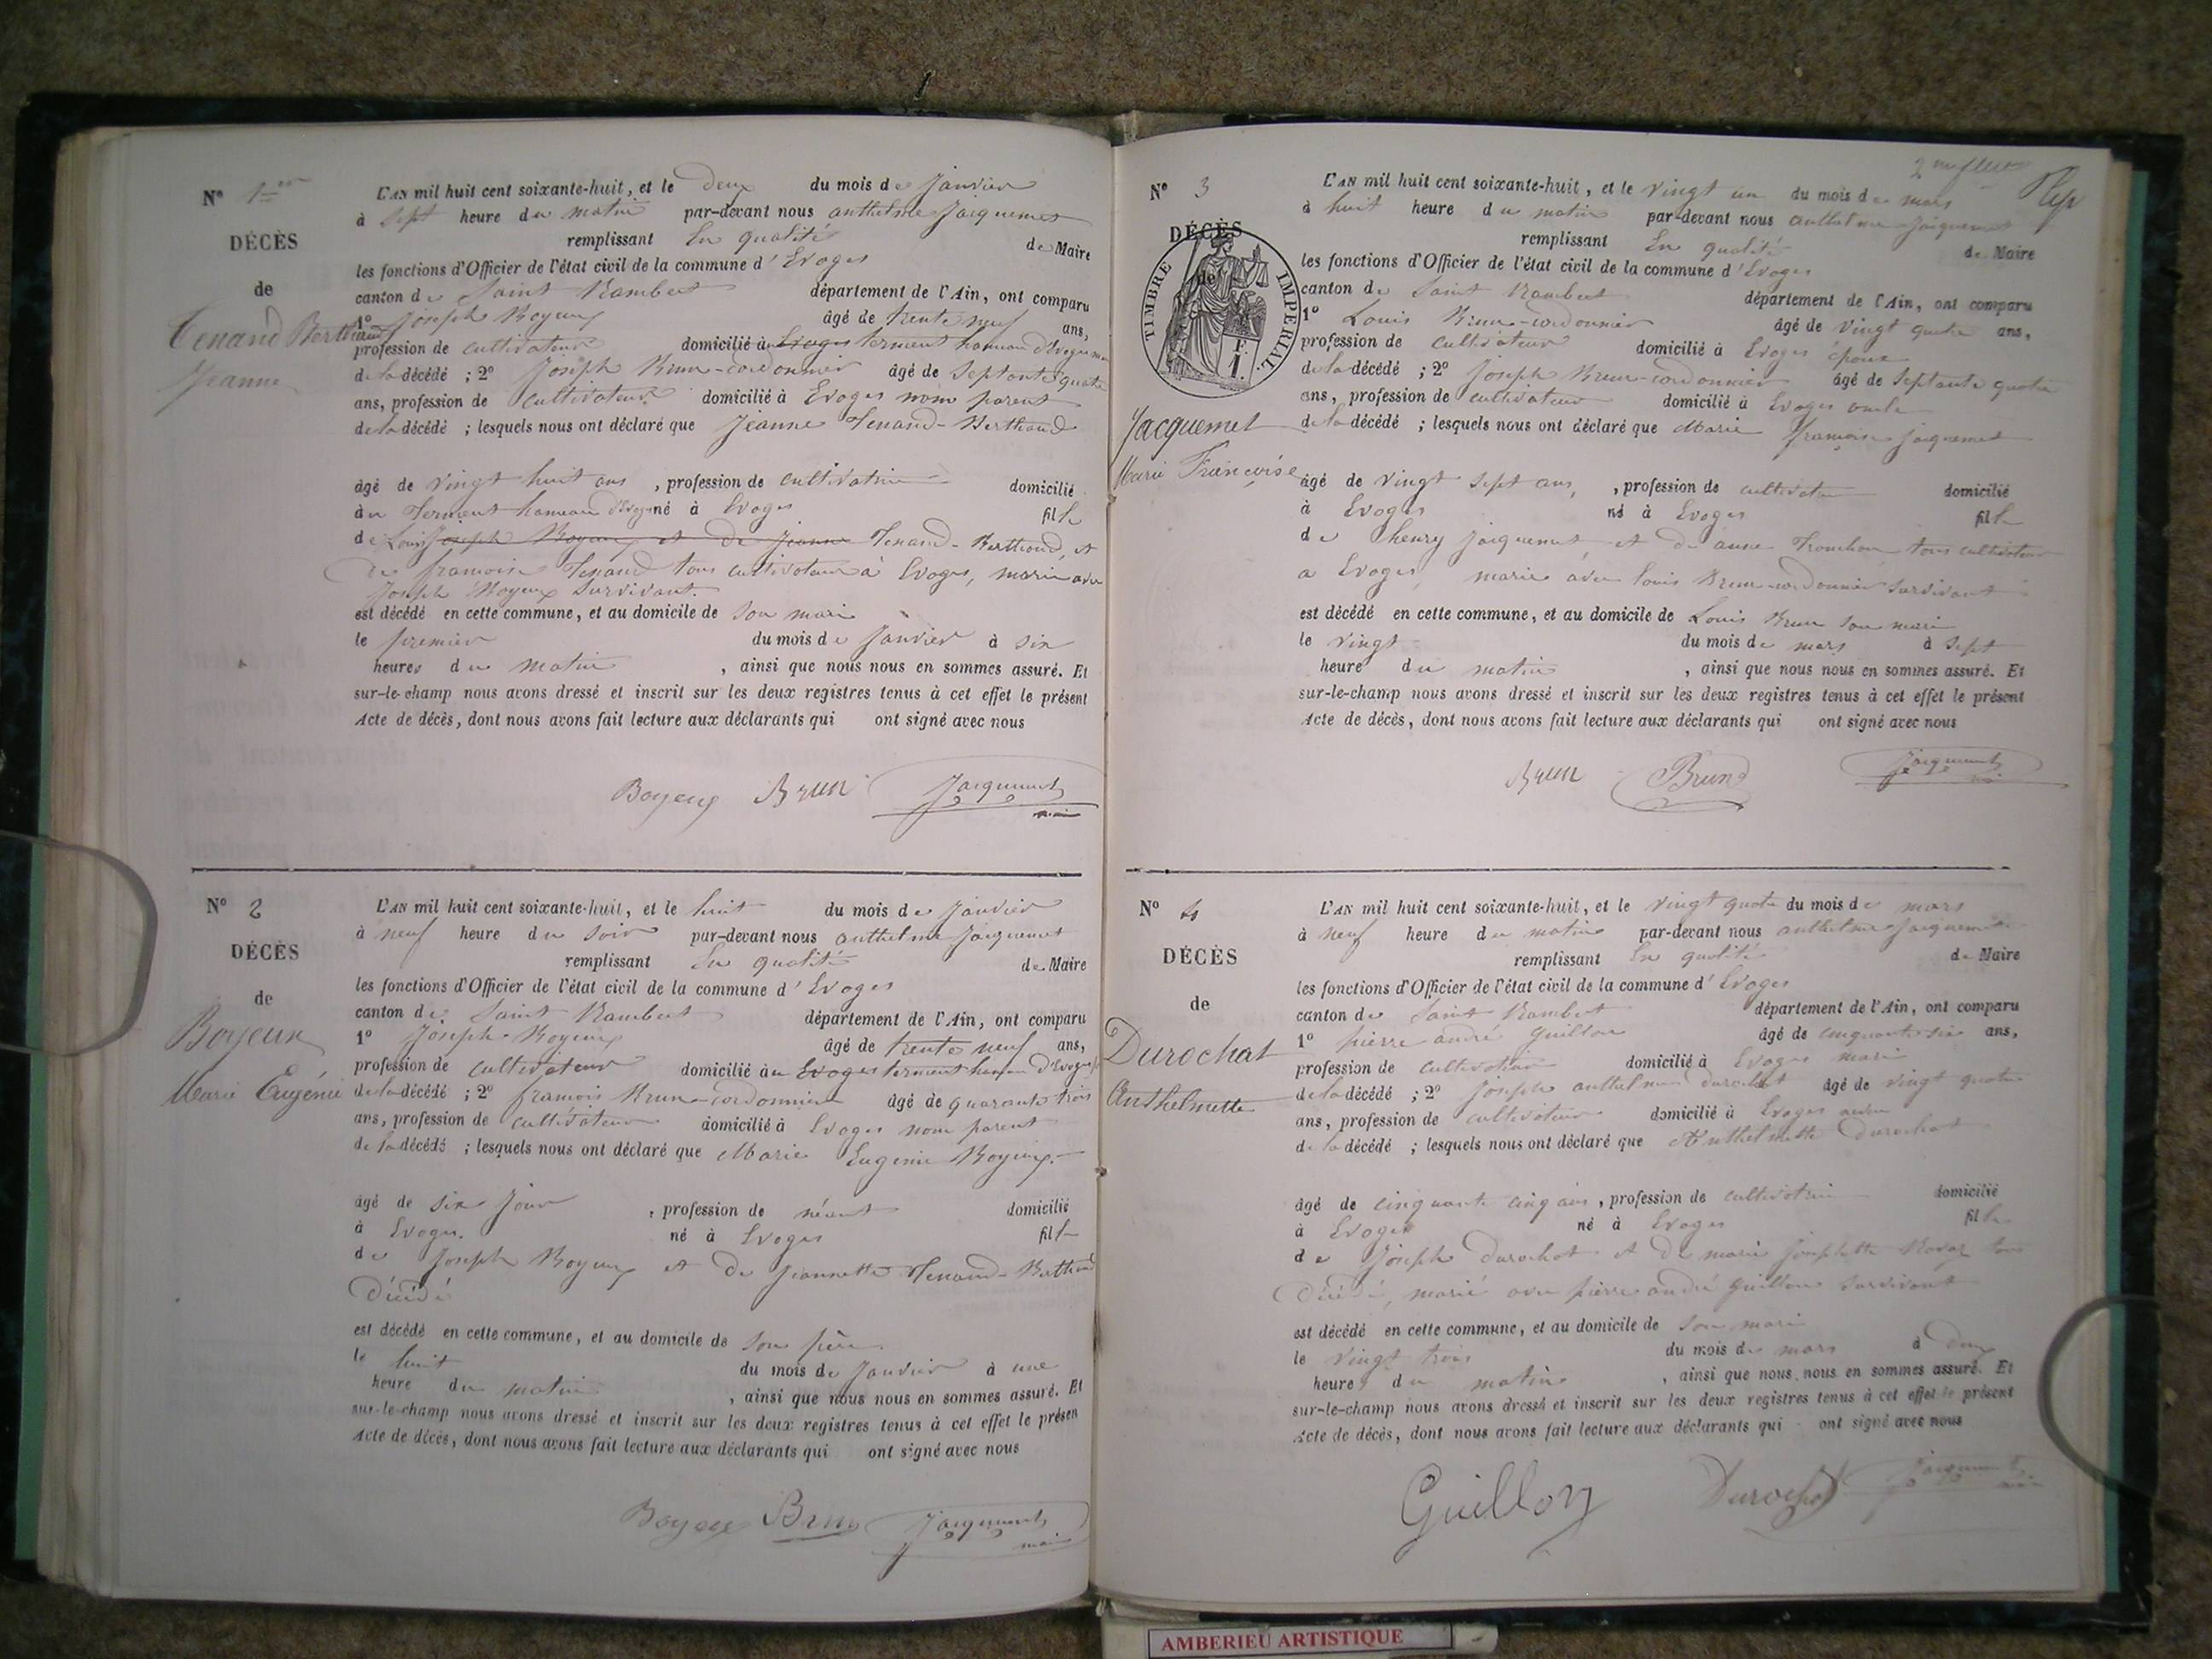 N° 1er
DÉCÈS
de
Tenand Berthaud
Jeanne
L'AN mil huit cent soixante-huit, et le deux du mois de Janvier
à sept heure du matin par-devant nous anthelme Jacquemet
remplissant En qualité de Maire
les fonctions d'Officier de l'état civil de la commune d'Evoges
canton de Saint Rambert département de l'Ain, ont comparu
1° Joseph Boyeux âgé de trente neuf ans,
profession de cultivateur domicilié au Evoges terment hameau d'Evoges mari
de la décédé ; 2° Joseph Brun-cordonnier âgé de septante quatre
ans, profession de cultivateur domicilié à Evoges non parent
de la décédé ; lesquels nous ont déclaré que Jeanne Tenand-Berthaud
âgé de vingt huit ans , profession de cultivatrice domicilié
au Terment hameau d'Evoges né à Evoges fille
de Louis Joseph Boyeux et de Jeanne Tenand-Berthaud, et
de françoise Tenand tous cultivateur à Evoges, marié avec
Joseph Boyeux survivant.
est décédé en cette commune, et au domicile de son mari
le premier du mois de Janvier à six
heures du matin , ainsi que nous nous en sommes assuré. Et
sur-le-champ nous avons dressé et inscrit sur les deux registres tenus à cet effet le présent
Acte de décès, dont nous avons fait lecture aux déclarants qui ont signé avec nous
Boyeux Brun Jacquemet
maire
N° 2
DÉCÈS
de
Boyeux
Marie Eugénie
L'AN mil huit cent soixante-huit, et le huit du mois de Janvier
à neuf heure du soir par-devant nous anthelme Jacquemet
remplissant En qualité de Maire
les fonctions d'Officier de l'état civil de la commune d'Evoges
canton de Saint Rambert département de l'Ain, ont comparu
1° Joseph Boyeux âgé de trente neuf ans,
profession de cultivateur domicilié au Evoges terment hameau d'Evoges
de la décédé ; 2° françois Brun-cordonnier âgé de quarante trois
ans, profession de cultivateur domicilié à Evoges non parent
de la décédé ; lesquels nous ont déclaré que Marie Eugenie Boyeux.
âgé de six jour , profession de néant domicilié
à Evoges. né à Evoges fille
de Joseph Boyeux et de Jeannette Tenand-Berthaud
Décédé
est décédé en cette commune, et au domicile de son père
le huit du mois de Janvier à une
heure du matin , ainsi que nous nous en sommes assuré. Et
sur-le-champ nous avons dressé et inscrit sur les deux registres tenus à cet effet le présen
Acte de décès, dont nous avons fait lecture aux déclarants qui ont signé avec nous
Boyeux Brun Jacquemet
maire
2me
N° 3
DÉCÈS
de
TIMBRE IMPERIAL
F.
1.
Jacquemet
Marie Françoise
L'AN mil huit cent soixante-huit, et le vingt un du mois de mars
à huit heure du matin par-devant nous anthelme Jacquemet
remplissant En qualité de Maire
les fonctions d'Officier de l'état civil de la commune d'Evoges
canton de Saint Rambert département de l'Ain, ont comparu
1° Louis Brun-cordonnier âgé de vingt quatre ans,
profession de cultivateur domicilié à Evoges époux
de la décédé ; 2° Joseph Brun-cordonnier âgé de septante quatre
ans, profession de cultivateur domicilié à Evoges oncle
de la décédé ; lesquels nous ont déclaré que Marie françoise Jacquemet
âgé de vingt sept ans, , profession de cultivatrice domicilié
à Evoges né à Evoges fille
de henry Jacquemet et de anne Tronchon tous cultivateur
a Evoges, marié avec louis Brun-cordonnier survivant
est décédé en cette commune, et au domicile de Louis Brun son mari
le vingt du mois de mars à sept
heure du matin , ainsi que nous nous en sommes assuré. Et
sur-le-champ nous avons dressé et inscrit sur les deux registres tenus à cet effet le présent
Acte de décès, dont nous avons fait lecture aux déclarants qui ont signé avec nous
Brun Brun Jacquemet
N° 4
DÉCÈS
de
Durochat
Anthelmette
L'AN mil huit cent soixante-huit, et le vingt quatre du mois de mars
à neuf heure du matin par-devant nous anthelme Jacquemet
remplissant En qualité de Maire
les fonctions d'Officier de l'état civil de la commune d'Evoges
canton de Saint Rambert département de l'Ain, ont comparu
1° pierre andré Guillon âgé de cinquante six ans,
profession de cultivateur domicilié à Evoges mari
de la décédé ; 2° Joseph anthelme durochat âgé de vingt quatre
ans, profession de cultivateur domicilié à Evoges neveu
de la décédé ; lesquels nous ont déclaré que Anthelmette Durochat
âgé de cinquante cinq ans , profession de cultivatrice domicilié
à Evoges né à Evoges fille
de Joseph durochat et de marie Josephette tous
Décédé, marié avec pierre andré guillon survivant
est décédé en cette commune, et au domicile de son mari
le vingt trois du mois de mars à deux
heures du matin , ainsi que nous nous en sommes assuré. Et
sur-le-champ nous avons dressé et inscrit sur les deux registres tenus à cet effet le présent
Acte de décès, dont nous avons fait lecture aux déclarants qui ont signé avec nous
Guillon Durochat Jacquemet
AMBERIEU ARTISTIQUE